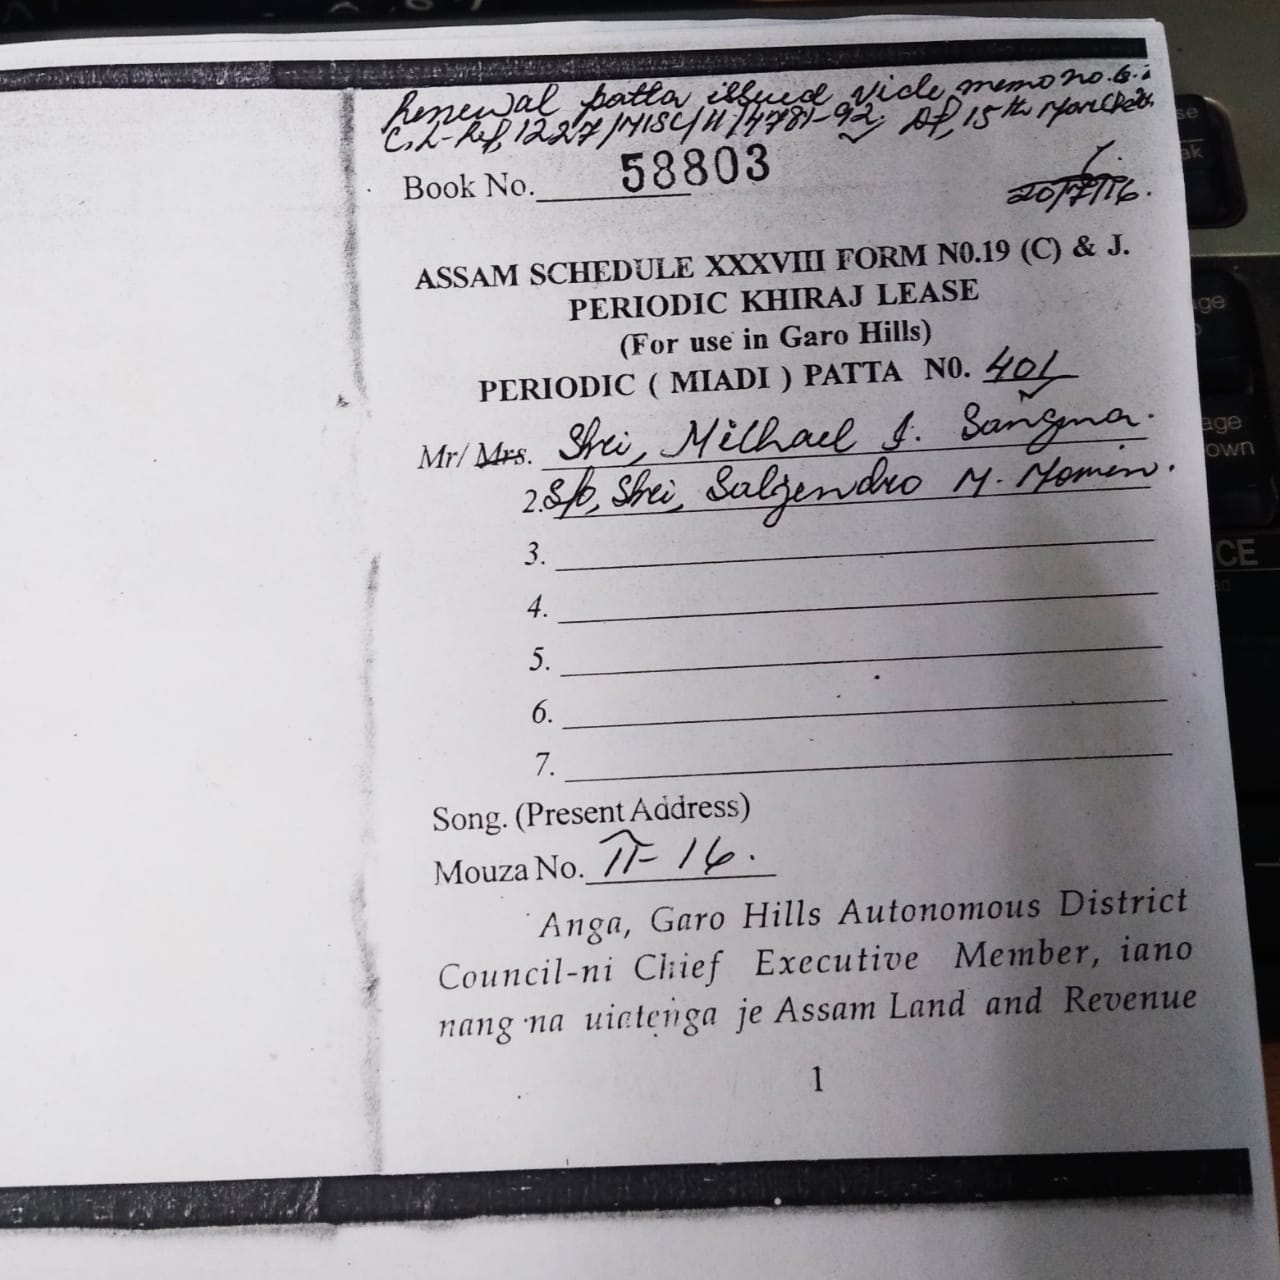 Renewal patta issued vide memo no. G.
C.L-Ref, 1227/MISC/11/4781-92, Df, 15th March
Book No. 58803
20/7/16.
ASSAM SCHEDULE XXXVIII FORM N0.19 (C) & J.
PERIODIC KHIRAJ LEASE
(For use in Garo Hills)
PERIODIC ( MIADI ) PATTA N0. 401
Mr/ Mrs. Shri, Milhael J. Sangma.
2. S/o, Shri, Saljendro M. Momin.
3.
4.
5.
6.
7.
Song. (Present Address)
Mouza No. II- 16.
Anga, Garo Hills Autonomous District
Council-ni Chief Executive Member, iano
nang·na uiatenga je Assam Land and Revenue
1
se
ak
ge
age
own
CE